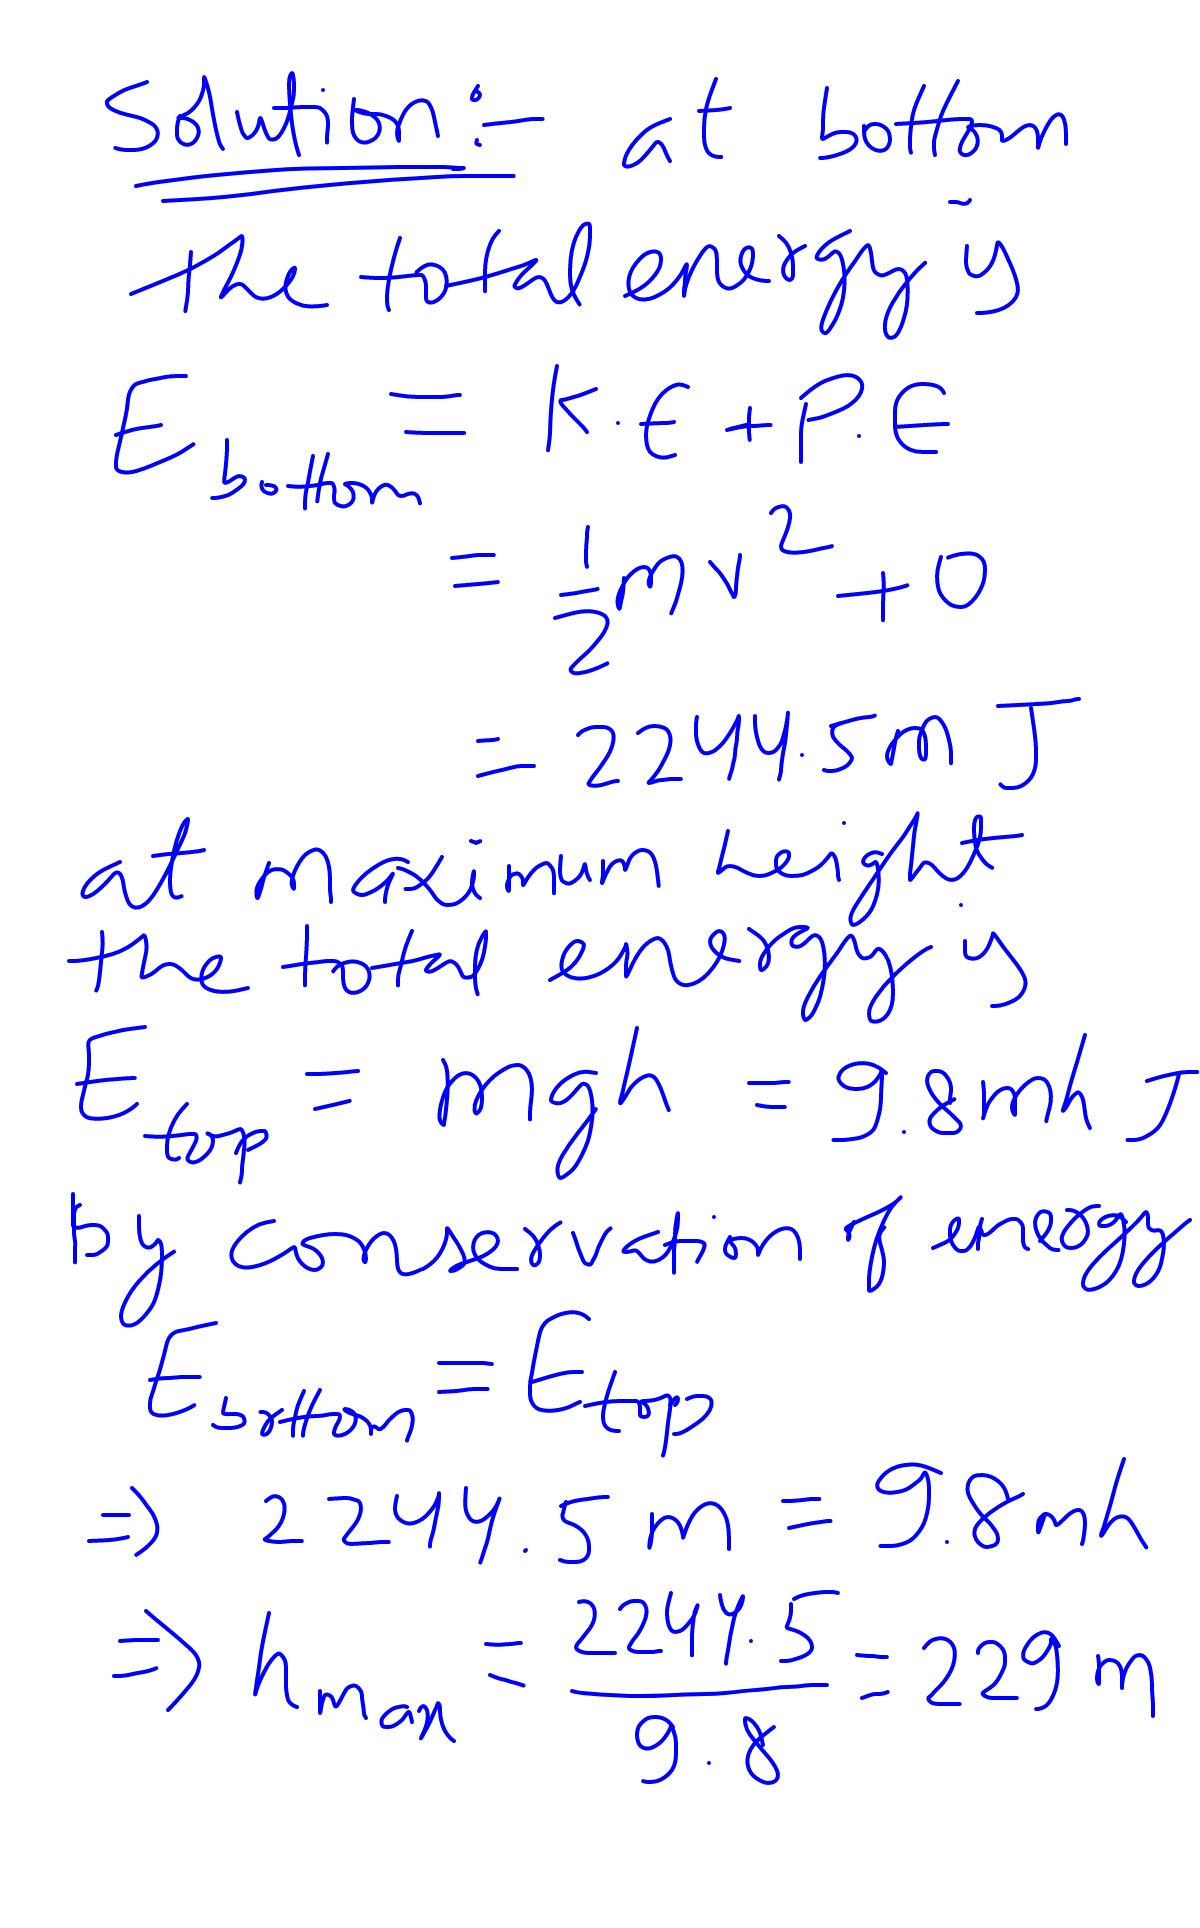 Solution :- at bottom
the total energy is
E bottom = K.E + P.E
= 1/2 mv² + 0
= 2244.5 m J
at maximum height
the total energy is
E top = mgh = 9.8 mh J
by conservation of energy
E bottom = E top
⇒ 2244.5 m = 9.8 mh
⇒ h max = 2244.5/9.8 = 229 m